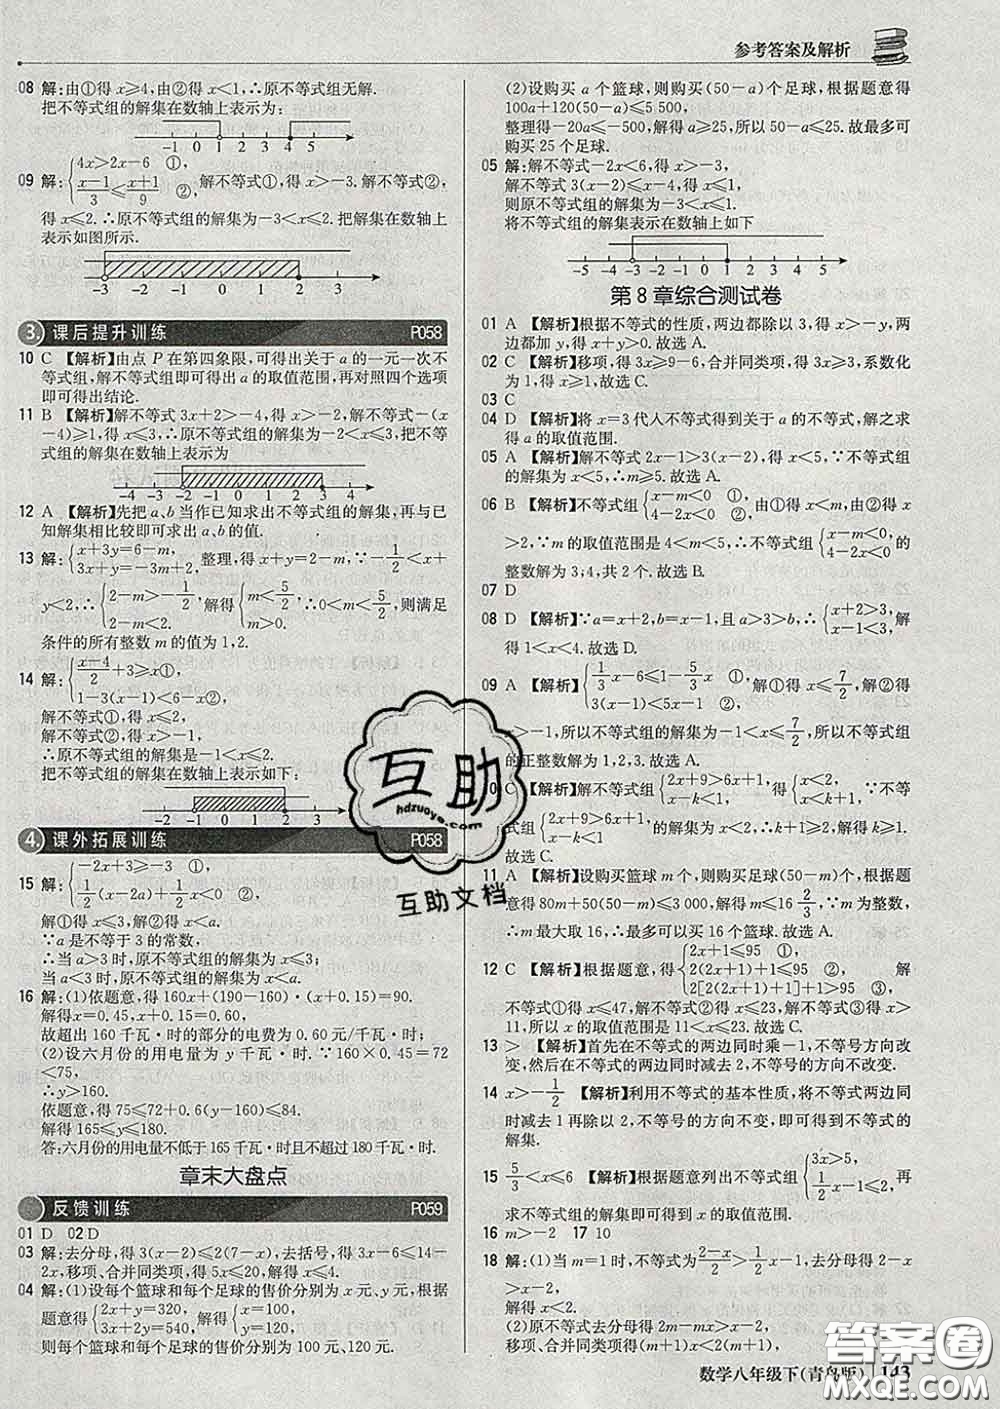 参考答案及解析
08 解:由①得 x≥4,由②得 x<1,∴原不等式组无解.
把不等式组的解集在数轴上表示为:
-1 0 1 2 3 4 5
09 解:{4x>2x-6 ①, (x-1)/3≤(x+1)/9 ②, 解不等式①,得 x>-3.解不等式②,
得 x≤2.∴原不等式组的解集为-3<x≤2.把解集在数轴上
表示如图所示.
-3 -2 -1 0 1 2 3
3. 课后提升训练 P058
10 C 【解析】由点 P 在第四象限,可得出关于 a 的一元一次不
等式组,解不等式组即可得出 a 的取值范围,再对照四个选项
即可得出结论.
11 B 【解析】解不等式 3x+2>-4,得 x>-2,解不等式-(x
-4)≥1,得 x≤3,∴原不等式组的解集为-2<x≤3,把不等
式组的解集在数轴上表示为
-4 -3 -2 -1 0 1 2 3 4
12 A 【解析】先把 a、b 当作已知求出不等式组的解集,再与已
知解集相比较即可求出 a、b 的值.
13 解:{x+3y=6-m, 3x+y=-3m+2, 整理,得 x+y=2-m,∵-1/2<x+
y<2,∴{2-m>-1/2, 2-m<2. 解得{m<5/2, m>0. ∴0<m<5/2,则满足
条件的所有整数 m 的值为 1,2.
14 解:{(x-4)/2+3≥x①, 1-3(x-1)<6-x②,
解不等式①,得 x≤2,
解不等式②,得 x>-1,
∴原不等式组的解集是-1<x≤2.
把不等式组的解集在数轴上表示如下:
-2 -1 0 1 2 3
4. 课外拓展训练 P058
15 解:{-2x+3≥-3 ①, 1/2(x-2a)+1/2x<0 ②,
解①得 x≤3,解②得 x<a.
∵a 是不等于 3 的常数,
∴当 a>3时,原不等式组的解集为 x≤3;
当 a<3 时,原不等式组的解集为 x<a.
16 解:(1)依题意,得 160x+(190-160)·(x+0.15)=90.
解得x=0.45,x+0.15=0.60,
故超出 160 千瓦·时的部分的电费为 0.60 元/千瓦·时;
(2)设六月份的用电量为 y 千瓦·时.∵160×0.45=72
<75,
∴y>160.
依题意,得 75≤72+0.6(y-160)≤84.
解得 165≤y≤180.
答:六月份的用电量不低于 165 千瓦·时且不超过 180 千瓦·时.
章末大盘点
反馈训练 P059
01 D 02 D
03 解:去分母,得 3(x-2)≤2(7-x),去括号,得 3x-6≤14-
2x,移项、合并同类项,得 5x≤20,解得 x≤4.
04 解:(1)设每个篮球和每个足球的售价分别为 x元、y元,根据
题意得{2x+y=320, 3x+2y=540, 解得{x=100, y=120,
则每个篮球和每个足球的售价分别为 100 元、120 元.
(2)设购买 a 个篮球,则购买(50-a)个足球,根据题意得
100a+120(50-a)≤5 500,
整理得-20a≤-500,解得 a≥25,所以 50-a≤25.故最多可
购买 25 个足球.
05 解:解不等式-2x<6,得 x>-3,
解不等式 3(x-2)≤x-4,得 x≤1,
则原不等式组的解集为-3<x≤1,
将不等式组的解集表示在数轴上如下
-5 -4 -3 -2 -1 0 1 2 3 4 5
第 8 章综合测试卷
01 A 【解析】根据不等式的性质,两边都除以 3,得 x>-y,两
边都加 y,得 x+y>0.故选 A.
02 C 【解析】移项,得 3x≥9-6,合并同类项,得 3x≥3,系数化
为 1,得 x≥1.故选 C.
03 C
04 D 【解析】将 x=3代人不等式得到关于 a 的不等式,解之求
得 a的取值范围.
05 A 【解析】解不等式 2x-1>3(x-2),得 x<5,∵不等式组
的解集为 x<5,∴m≥5.故选 A.
06 B 【解析】不等式组{x-m<0 ①, 4-2x<0 ②, 由①得 x<m,由②得 x
>2,∵m 的取值范围是 4<m<5,∴不等式组{x-m<0, 4-2x<0 的
整数解为 3,4,共 2 个.故选 B.
07 D
08 D 【解析】∵a=x+2,b=x-1,且 a>3>b,∴{x+2>3, x-1<3, 解
得 1<x<4.故选 D.
09 A 【解析】{1/3x-6≤1-5/3x ①, 3(x-1)<5x-1 ②, 解①得 x≤7/2,解②得
x>-1,所以不等式组的解集为-1<x≤7/2,所以不等式组
的正整数解为 1,2,3.故选 A.
10 C 【解析】解不等式组{2x+9>6x+1, x-k<1, 得{x<2, x<k+1. ∵不等
式组{2x+9>6x+1, x-k<1 的解集为 x<2,∴k+1≥2,解得 k≥1.
故选 C.
11 A 【解析】设购买篮球 m 个,则购买足球(50-m)个,根据题
意得 80m+50(50-m)≤3 000,解得 m≤16 2/3,∵m 为整数,
∴m 最大取 16,∴最多可以买 16 个篮球.故选 A.
12 C 【解析】根据题意,得{2x+1≤95 ①, 2(2x+1)+1≤95 ②, 2[2(2x+1)+1]+1>95 ③, 解
不等式①得 x≤47,解不等式②得 x≤23,解不等式③得 x>
11,所以 x 的取值范围是 11<x≤23.故选 C.
13 > 【解析】首先在不等式的两边同时乘-1,不等号方向改
变,然后在不等式的两边同时减去 2,不等号的方向不改变.
14 x>-1/2 【解析】利用不等式的基本性质,将不等式两边同
时减去 1 再除以 2,不等号的方向不变,即可得到不等式的
解集.
15 5/3<x≤6 【解析】根据题意列出不等式组{3x>5, 1/2x-1≤2, 再
求不等式组的解集即可得到 x 的取值范围.
16 m>-2 17 10
18 解:(1)当 m=1 时,不等式为(2-x)/2>x/2-1,去分母得 2-x
>x-2,
解得 x<2.
(2)原不等式去分母得 2m-mx>x-2,
移项、合并同类项得(m+1)x<2(m+1),
数学八年级下(青岛版) 143
互助
hdzuoye.com
互助文档
答案圈
MXQE.COM